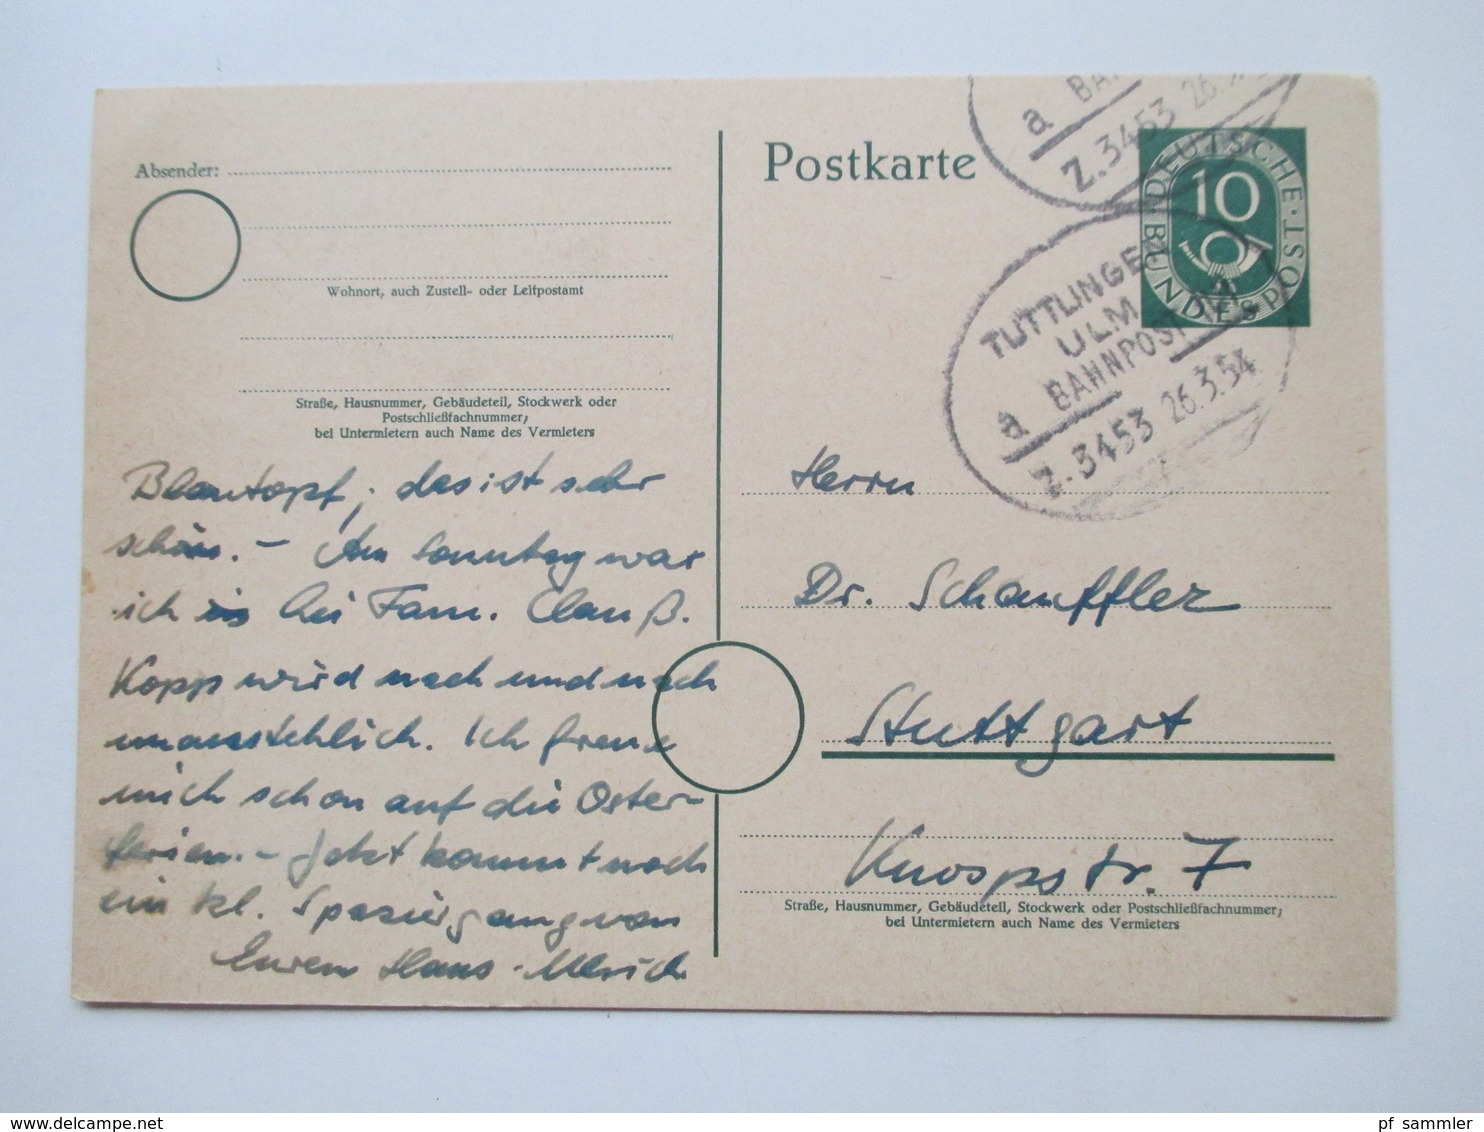 Absender:
Wohnort, auch Zustell- oder Leitpostamt
Straße, Hausnummer, Gebäudeteil, Stockwerk oder
Postschließfachnummer;
bei Untermietern auch Name des Vermieters
Blautopf; das ist sehr
schön. - Am Sonntag war
ich bei Fam. Clauß.
Kopp wird nach und nach
unausstehlich. Ich freue
mich schon auf die Oster-
ferien. - Jetzt kommt noch
ein kl. Spaziergang von
Eurem Hans-Ulrich
Postkarte
a BAH
Z.3453 26
DEUTSCHE BUNDESPOST
10
TUTTLINGEN
ULM
a BAHNPOST
Z.3453 26.3.54
Herrn
Dr. Schauffler
Stuttgart
Knospstr. 7
Straße, Hausnummer, Gebäudeteil, Stockwerk oder Postschließfachnummer;
bei Untermietern auch Name des Vermieters
www.delcampe.net
pf_sammler